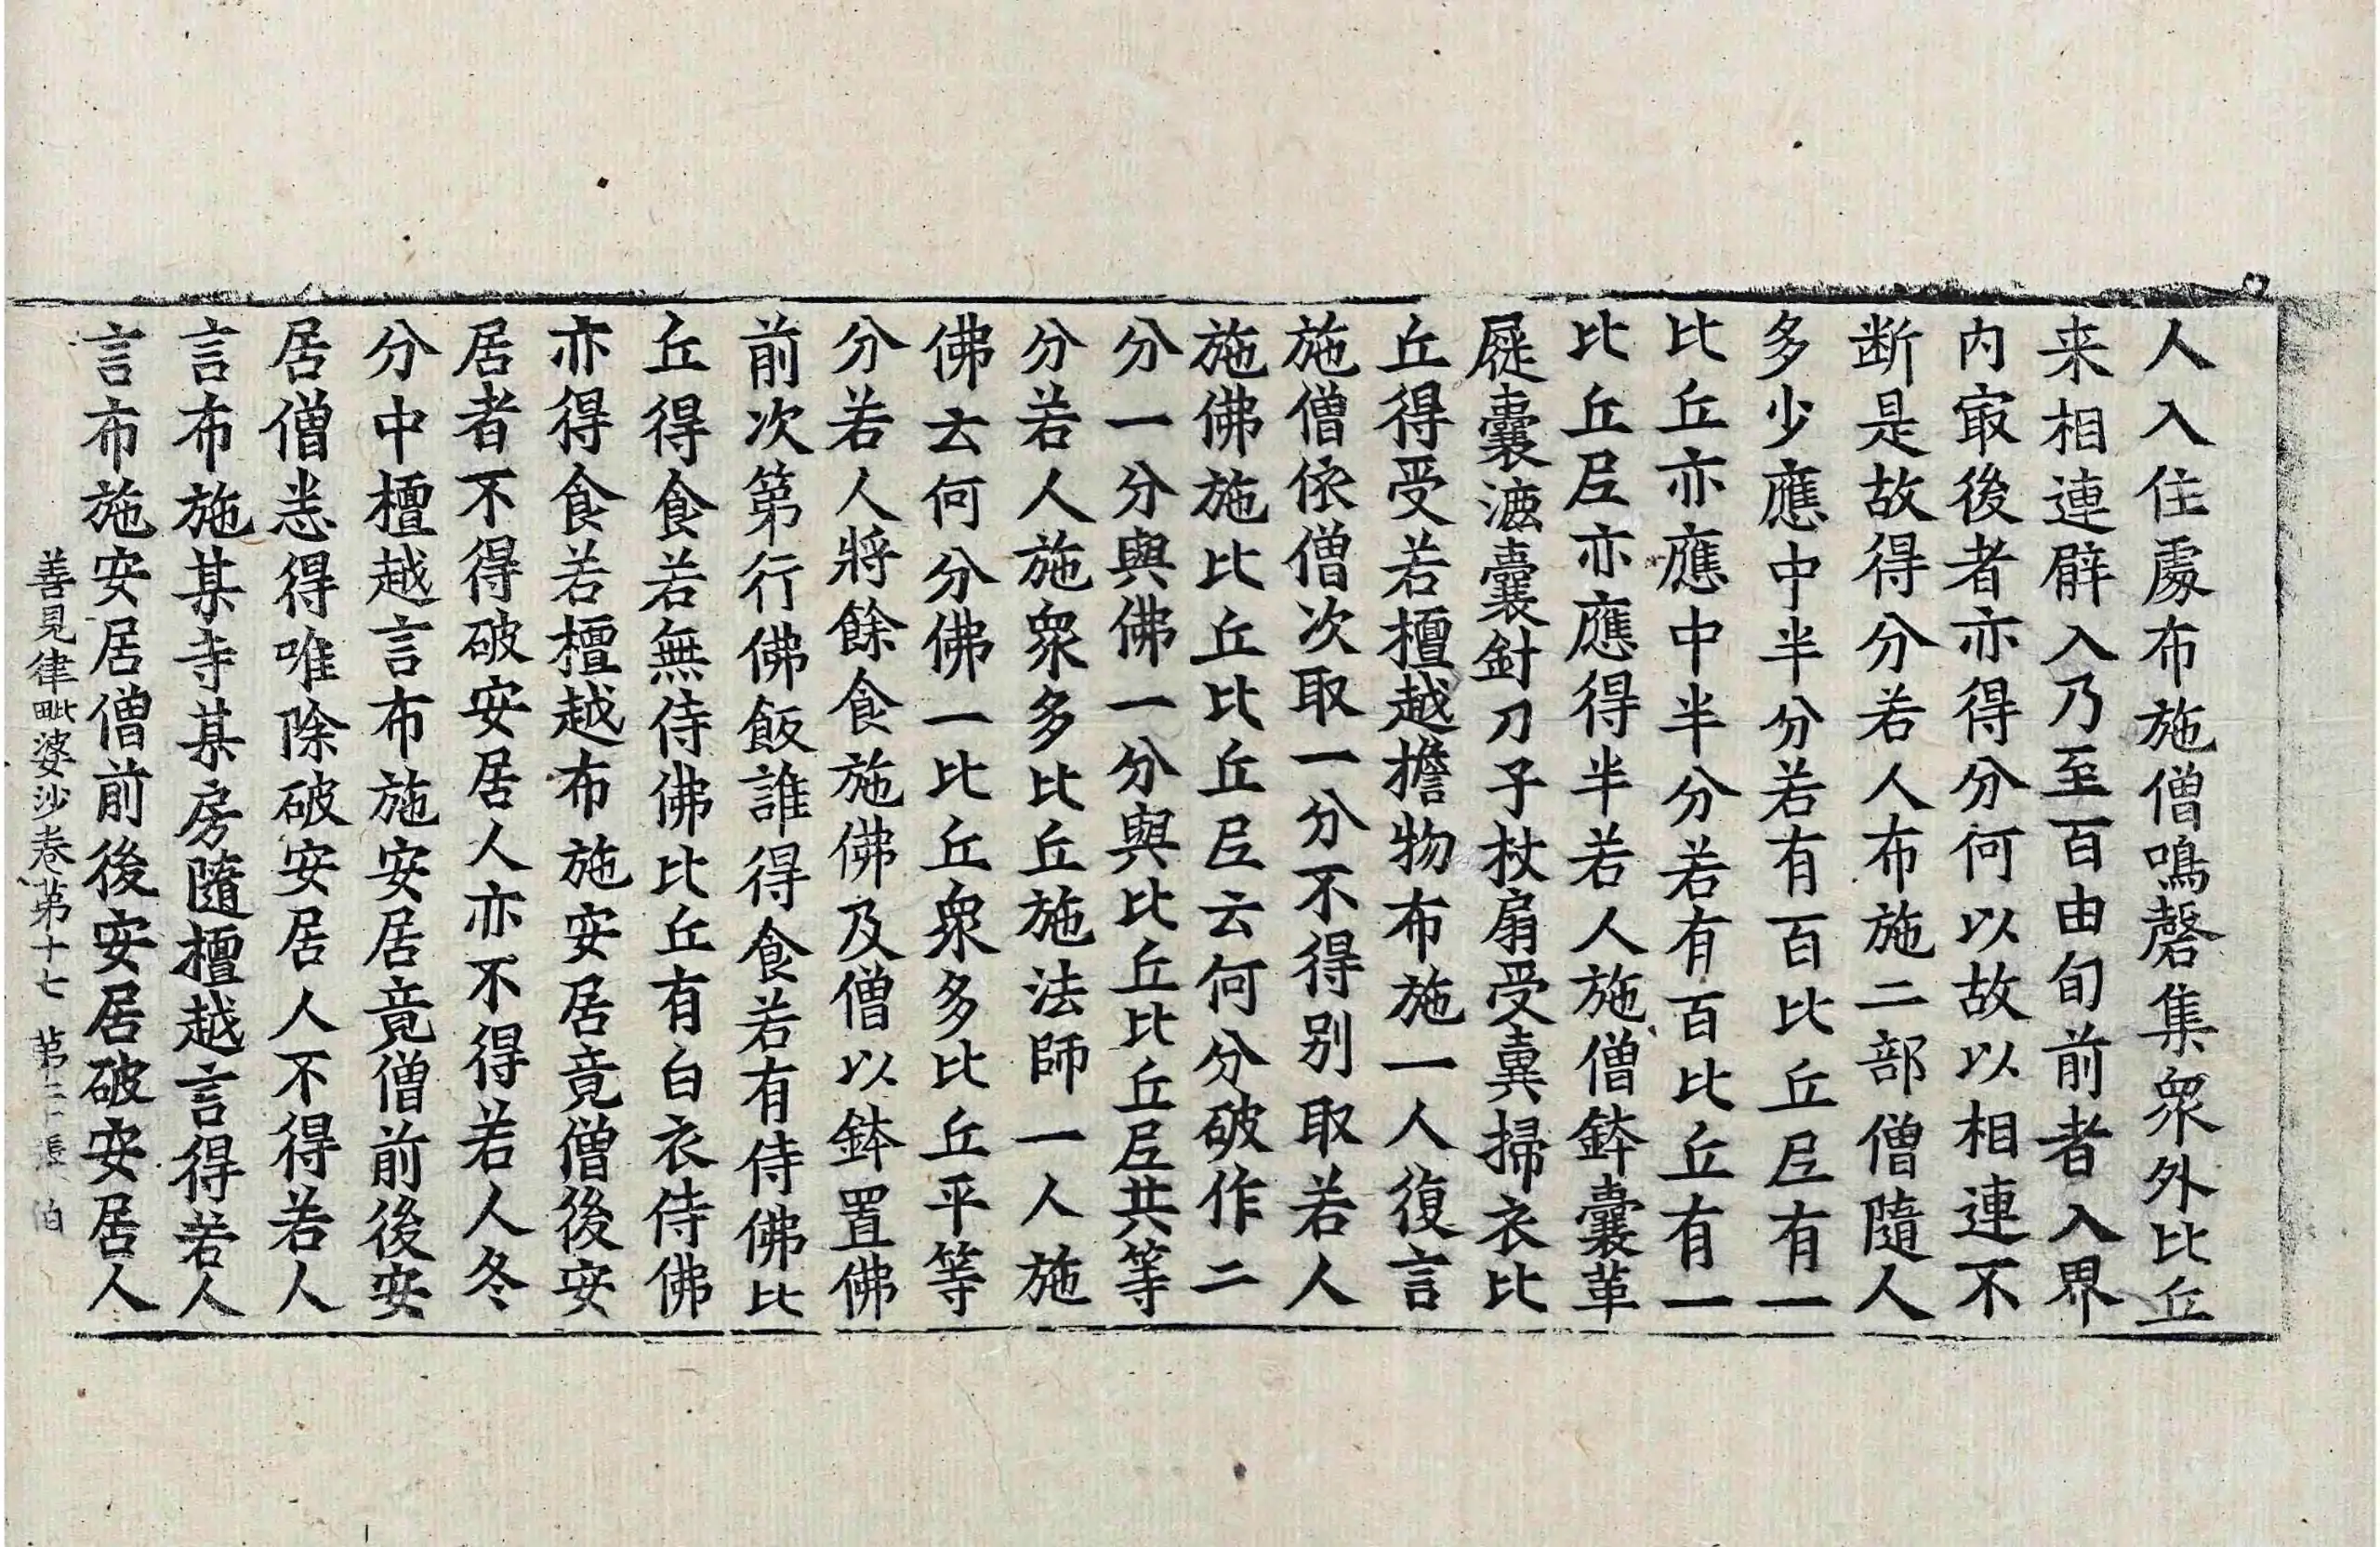 人入住處布施僧鳴磬集衆外比丘
来相連辟入乃至百由旬前者入界
内㝡後者亦得分何以故以相連不
断是故得分若人布施二部僧隨人
多少應中半分若有百比丘𡰱有一
比丘亦應中半分若有百比丘有一
比丘𡰱亦應得半若人施僧鉢囊革
屣囊漉囊針刀子杖扇受糞掃衣比
丘得受若檀越擔物布施一人復言
施僧依僧次取一分不得别取若人
施佛施比丘比丘𡰱云何分破作二
分一分與佛一分與比丘比丘𡰱共等
分若人施衆多比丘施法師一人施
佛云何分佛一比丘衆多比丘平等
分若人將餘食施佛及僧以鉢置佛
前次第行佛飯誰得食若有侍佛比
丘得食若無侍佛比丘有白衣侍佛
亦得食若檀越布施安居竟僧後安
居者不得破安居人亦不得若人冬
分中檀越言布施安居竟僧前後安
居僧恙得唯除破安居人不得若人
言布施某寺某房隨檀越言得若人
言布施安居僧前後安居破安居人
善見律毗婆沙卷第十七 第二十張 伯